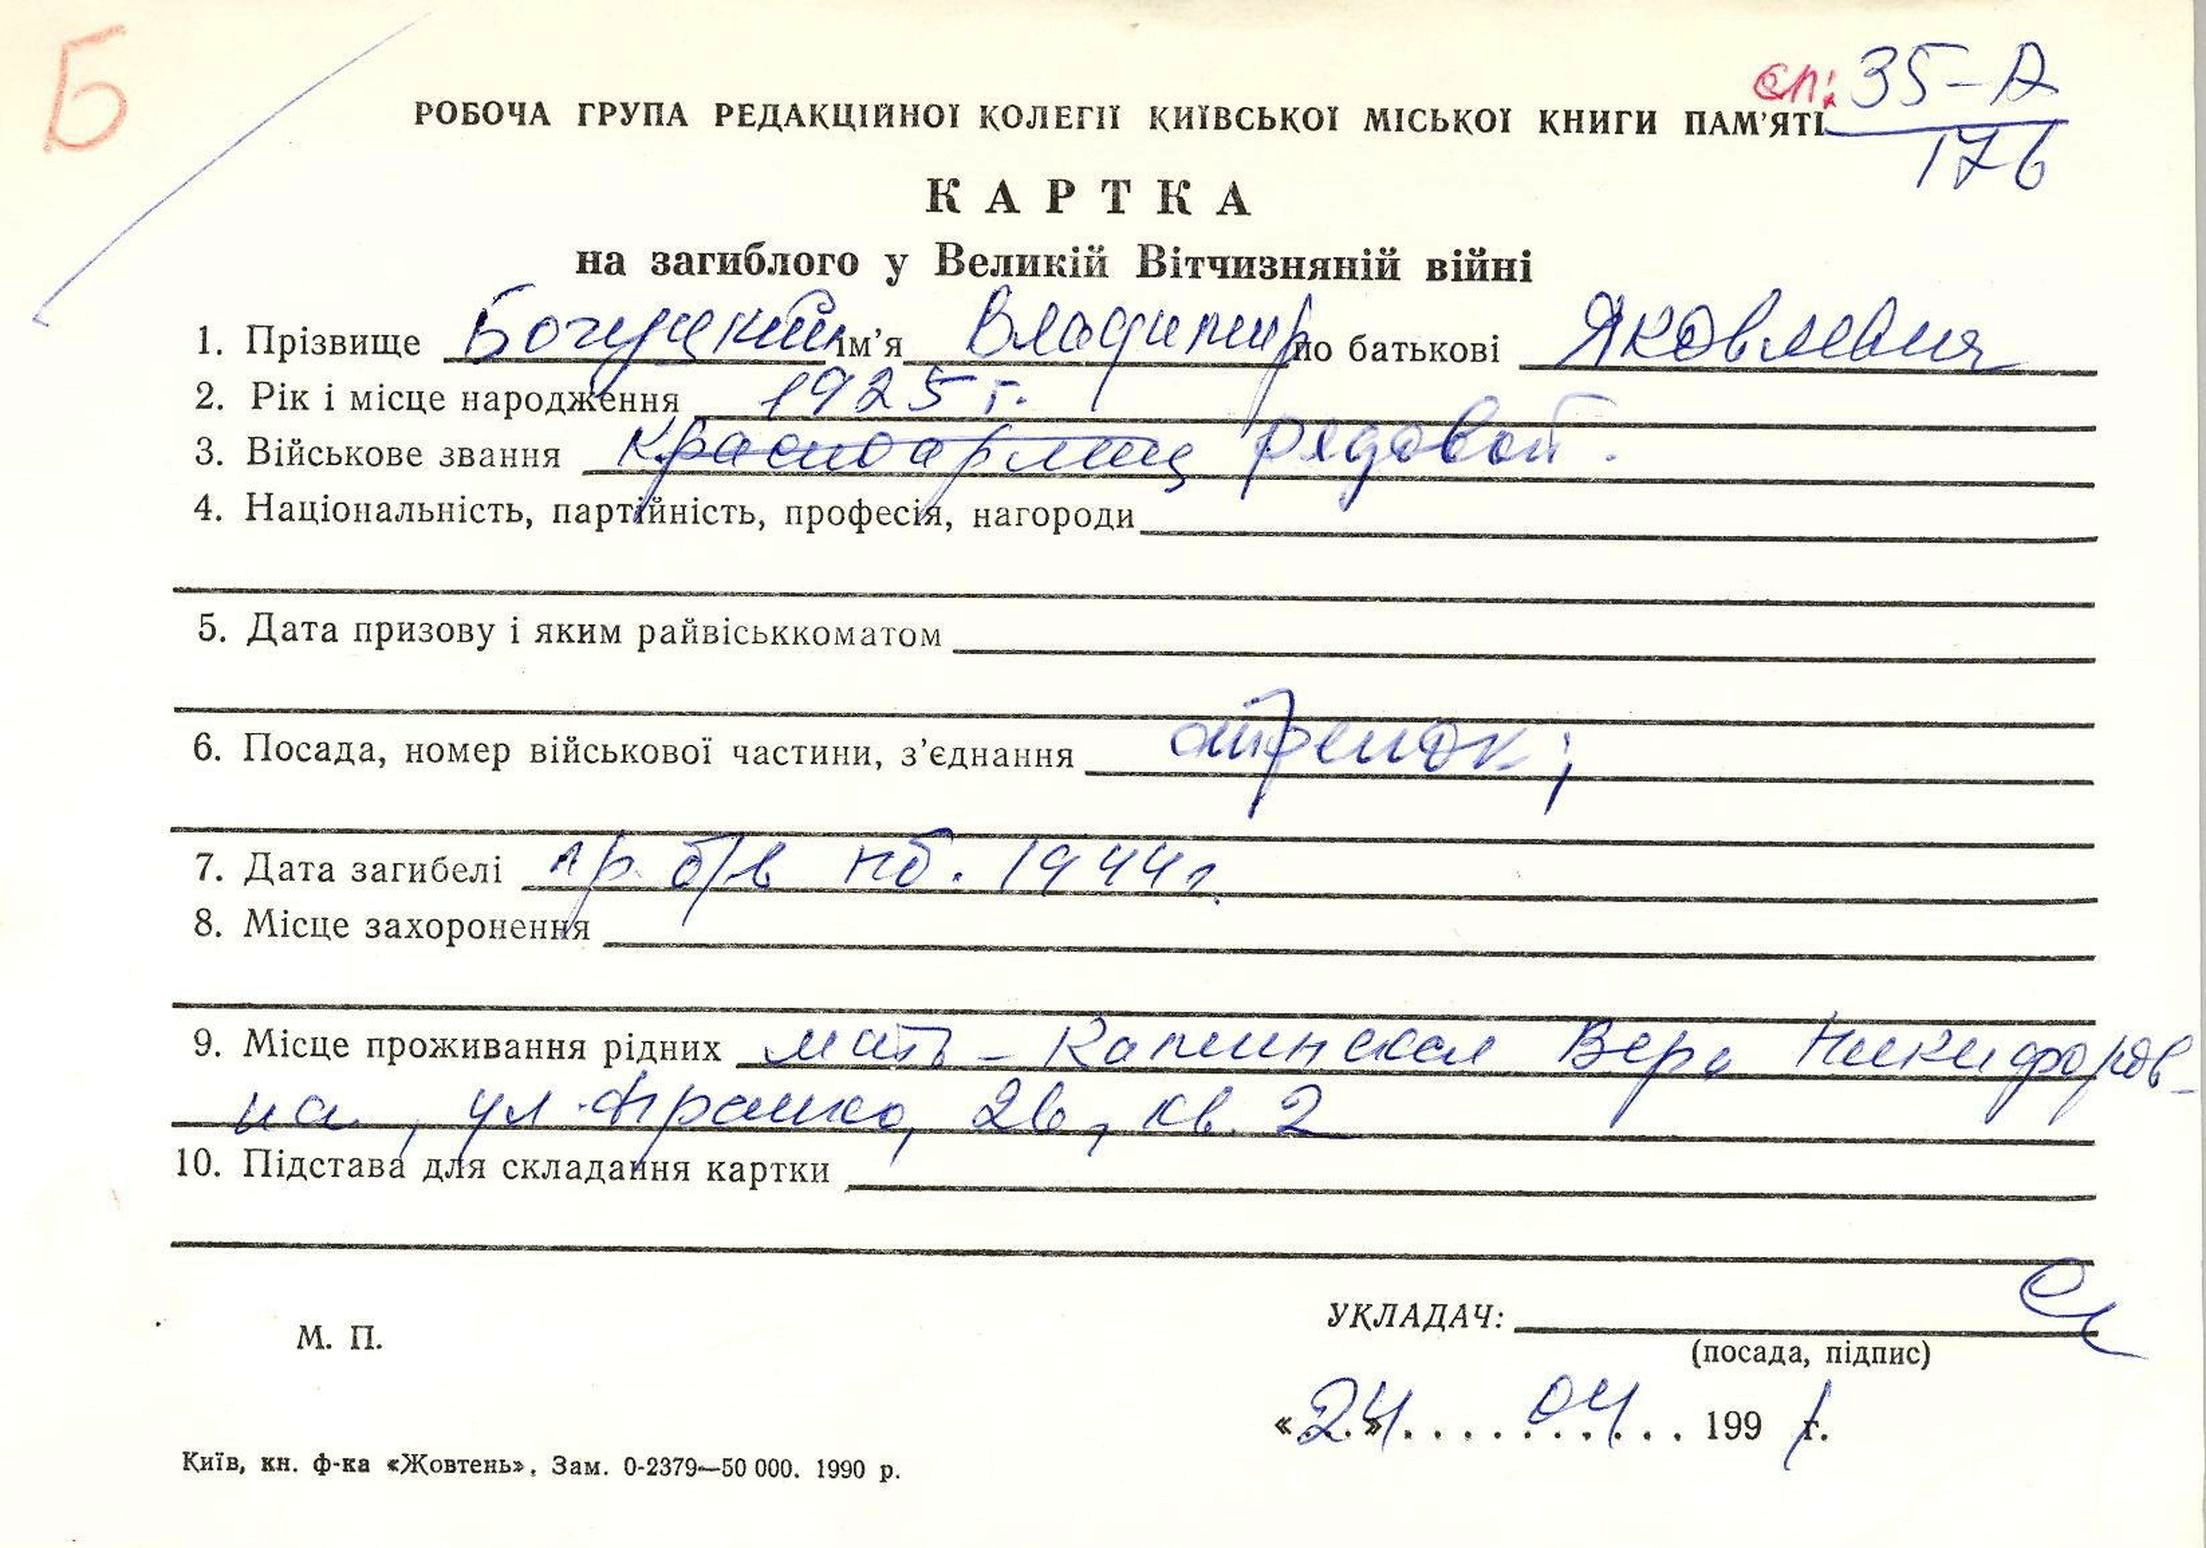 Б
сп: 35-А
176
РОБОЧА ГРУПА РЕДАКЦІЙНОЇ КОЛЕГІЇ КИЇВСЬКОЇ МІСЬКОЇ КНИГИ ПАМ'ЯТІ
КАРТКА
на загиблого у Великій Вітчизняній війні
1. Прізвище Богуцкий ім'я Владимир по батькові Яковлевич
2. Рік і місце народження 1925 г.
3. Військове звання красноармеец рядовой.
4. Національність, партійність, професія, нагороди
5. Дата призову і яким райвіськкоматом
6. Посада, номер військової частини, з'єднання стрелок;
7. Дата загибелі пр. б/в нб. 1944г.
8. Місце захоронення
9. Місце проживання рідних мать - Вера Никифоров-
на, ул. Франко, 26, кв. 2
10. Підстава для складання картки
М. П.
УКЛАДАЧ:
(посада, підпис)
«24» 04 1991 г.
Київ, кн. ф-ка «Жовтень». Зам. 0-2379—50 000. 1990 р.